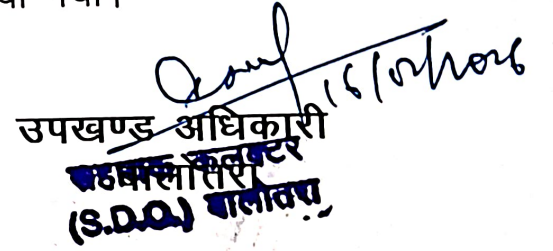 16/02/2026
उपखण्ड अधिकारी
सहायक कलक्टर
बालोतरा
(S.D.O.) बालोतरा